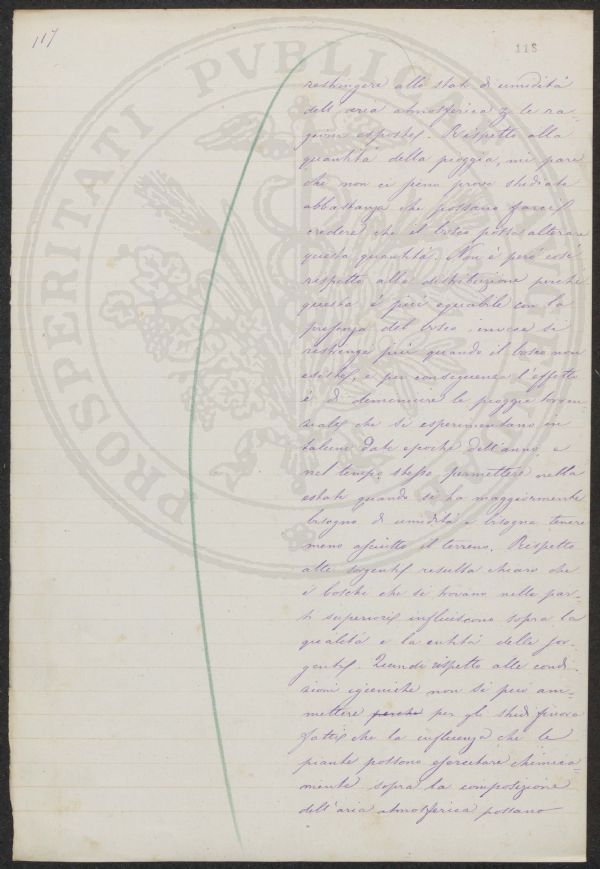 117
118
restringere allo stato di umidità
dell'aria atmosferica  le ra-
gioni esposte. Rispetto alla
quantità della pioggia, mi pare
che non ci  prove studiate
abbastanza che possano farci
credere che il bosco possa alterare
questa quantità. Non è però così
rispetto alla distribuzione perché
questa è più equabile con la
presenza del bosco, invece si
restringe più quando il bosco non
esiste, e per conseguenza l'effetto
è di diminuire le pioggie torren
ziali che si esperimentano in
talune date epoche dell'anno, e
nel tempo stesso permettere nella
estate quando si ha maggiormente
bisogno di umidità e bisogna tenere
meno asciutto il terreno. Rispetto
alle sorgenti resulta chiaro che
i boschi che si trovano nelle par-
ti superiori influiscono sopra la
qualità e la entità delle sor-
genti. Quindi rispetto alle condi-
zioni igieniche non si può am-
mettere perché per gli studi finora
fatti che la influenza che le
piante possono esercitare chimica-
mente sopra la composizione
dell'aria atmosferica possano
PROSPERITATI PVBLICAE